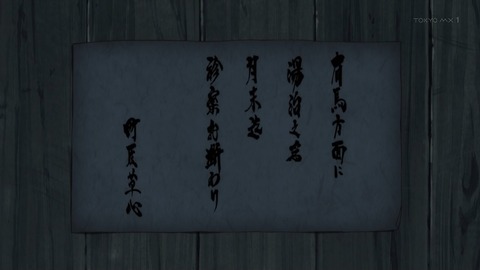 TOKYO MX 1
有馬方面に
湯治之為
月末迄
診察お断わり
町医草心